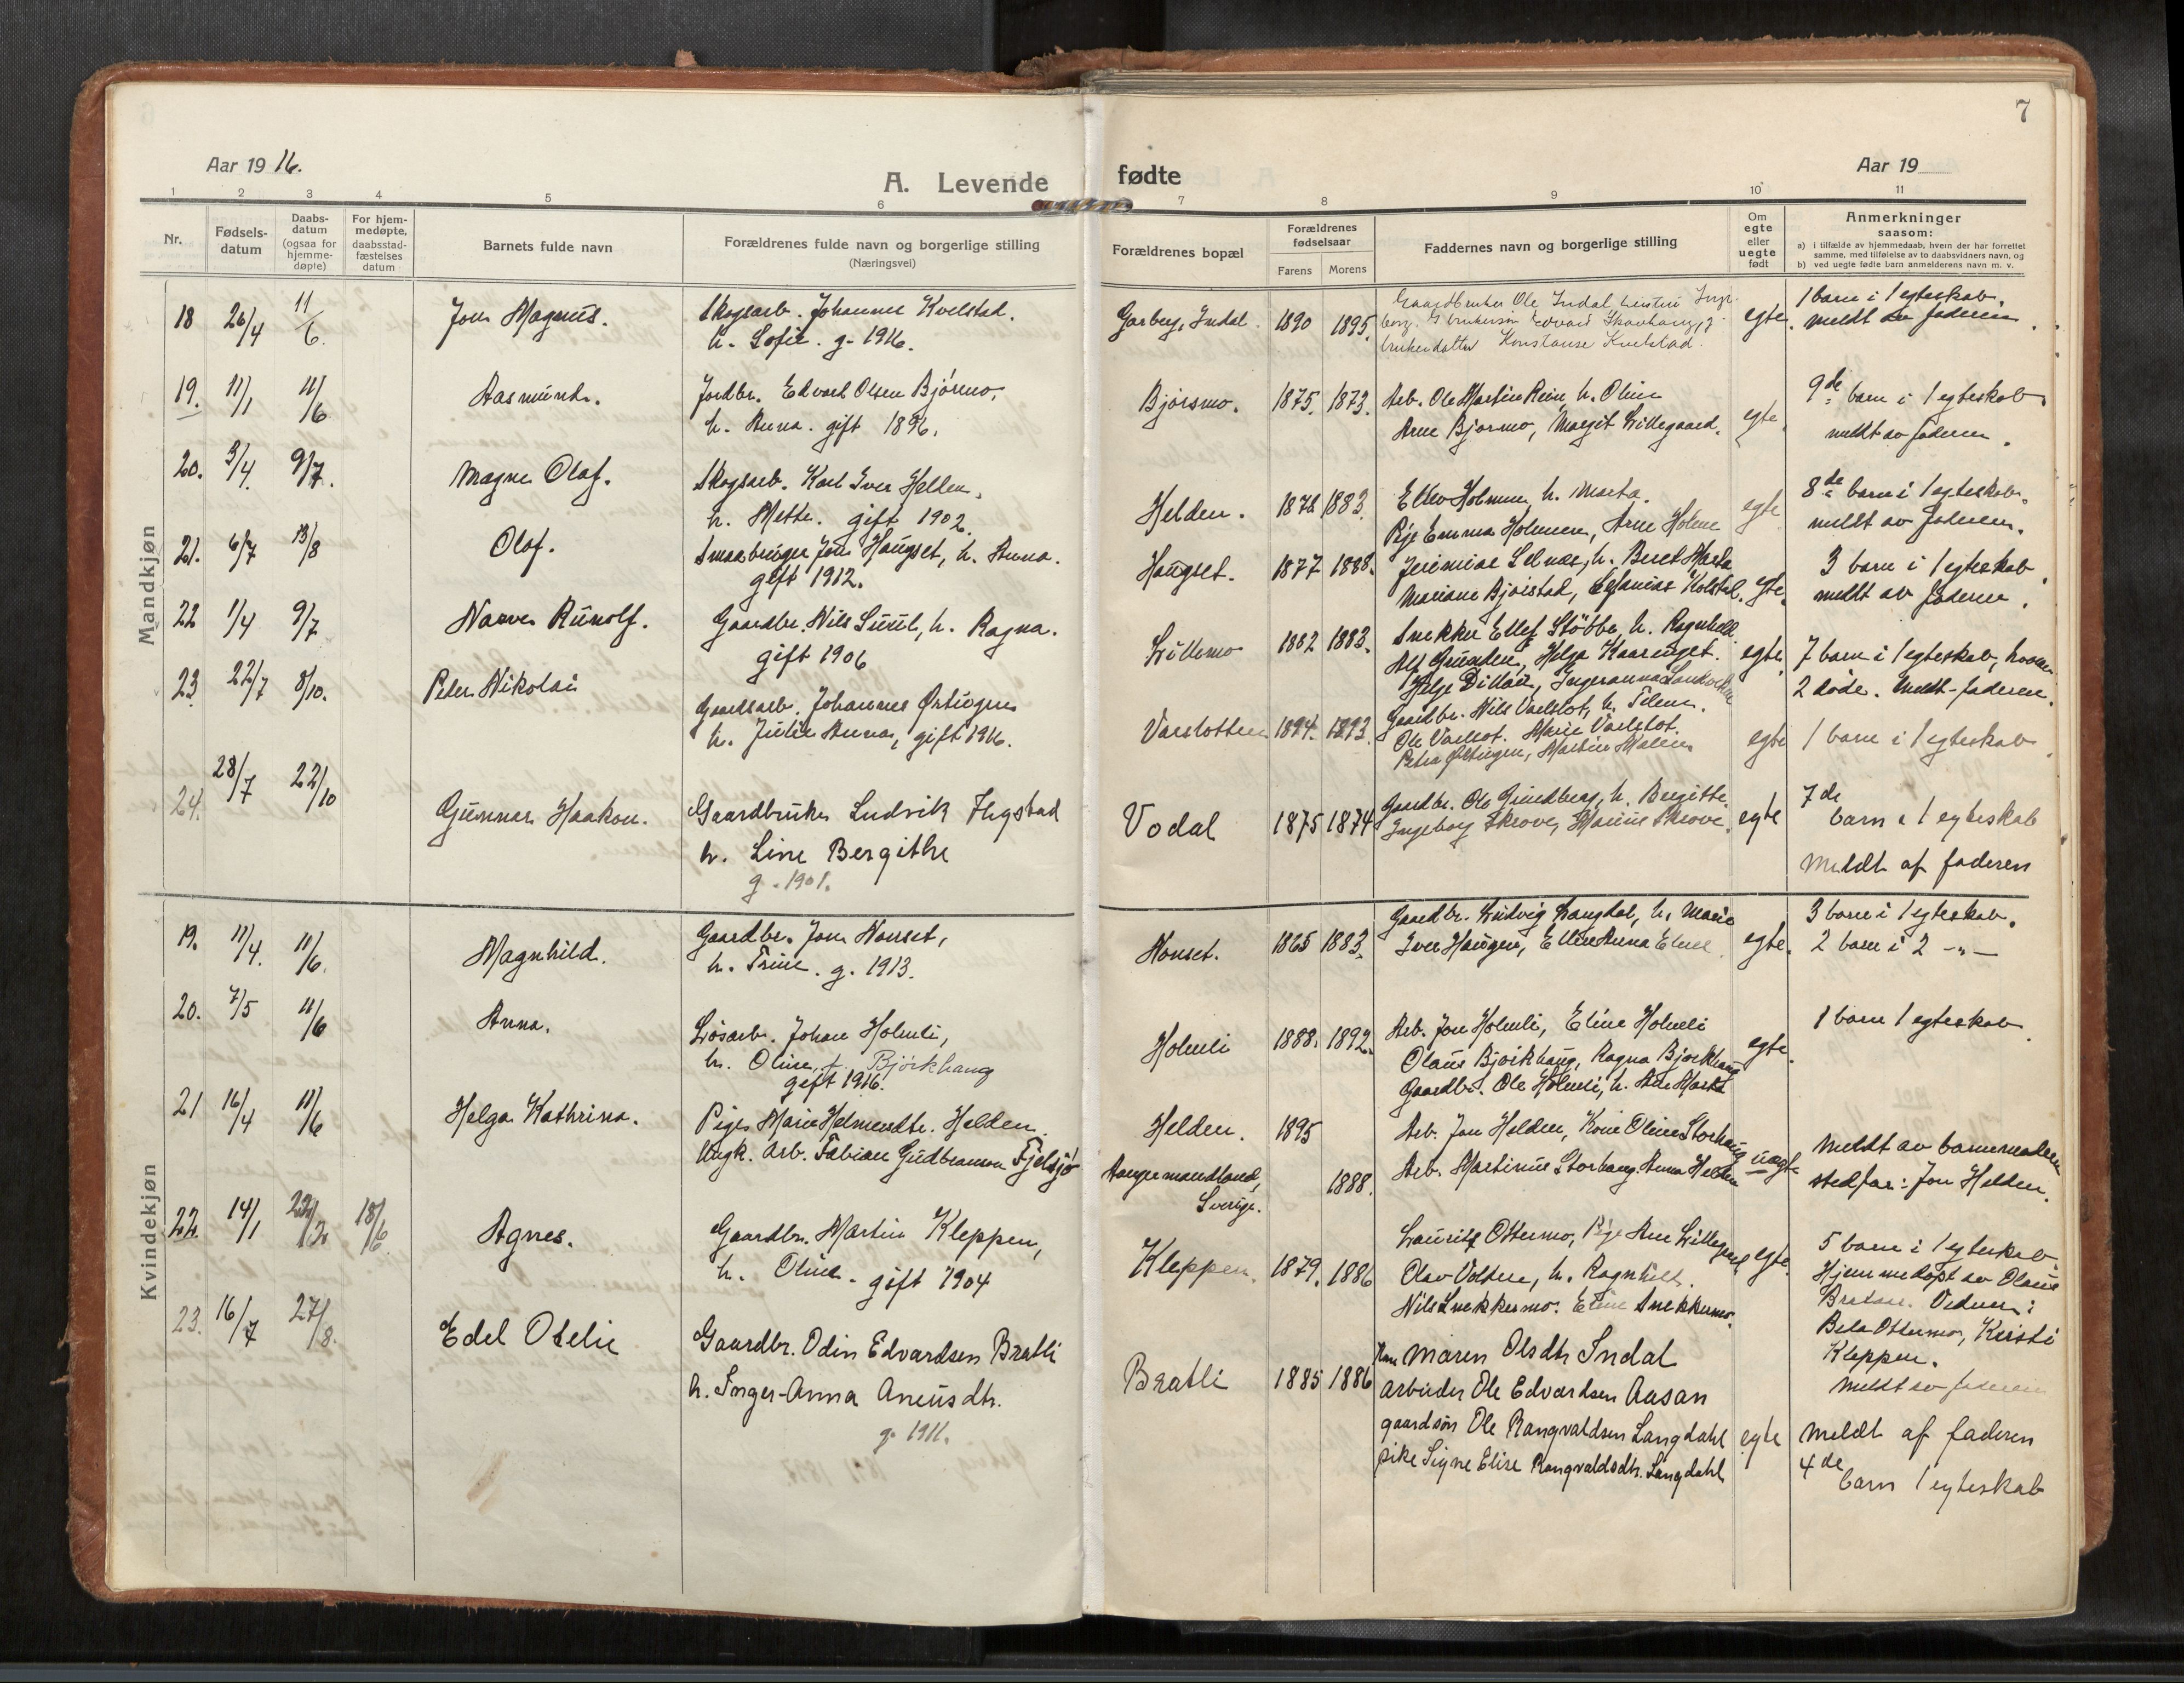 7
Aar 19 16.
A. Levende fødte
Aar 19
1 2 3 4 5 6 7 8 9 10 11
Nr.
Fødsels-
datum
Daabs-
datum
(ogsaa for
hjemme-
døpte)
For hjem-
medøpte,
daabsstad-
fæstelses
datum
Barnets fulde navn
Forældrenes fulde navn og borgerlige stilling
(Næringsvei)
Forældrenes bopæl
Forældrenes
fødselsaar
Farens Morens
Faddernes navn og borgerlige stilling
Om
egte
eller
uegte
født
Anmerkninger
saasom:
a) i tilfælde av hjemmedaab, hvem der har forrettet
samme, med tilføielse av to daabsvidners navn, og
b) ved uegte fødte barn anmelderens navn m. v.
Mandkjøn
18 26/4 11/6 Jon Magnus.
Skogsarb. Johannes Kvelstad.
h. Sofie. g. 1916.
Garberg, Indal 1890 1895.
Gaardbruker Ole Indal
Konstanse Kvelstad.
egte.
1 barn i 1 egteskab.
meldt av faderen
19. 11/1 11/6 Aasmund.
Jordbr. Edvard Olsen Bjørsmo,
h. Anna. gift 1896.
Bjørsmo. 1875. 1873.
Arb. Ole Martin Rein, h. Oline
Arne Bjørsmo, Margit Lillegaard.
egte.
9de barn i 1 egteskab
meldt av faderen.
20. 3/4. 9/7. Magne Olaf.
Skogsarb. Karl Iver Helden,
h. Mette. gift 1902.
Helden. 1872 1883.
Ellev Holmen, h. Marta.
Pige Emma Holmen, Arne Holme
egte
8de barn i 1 egteskab.
meldt av faderen.
21. 6/7 13/8 Olaf.
Smaabruger Jon Haugset, h. Anna.
gift 1912.
Haugset. 1877 1888.
Jeremias Selnæs, h. Beret Marta
Mariane Bjøistad, Kolstad.
egte.
3 barn i 1 egteskab
meldt av faderen.
22 1/4 9/7 Narve Runolf.
Gaardbr. Nils Suul, h. Ragna.
gift 1906
Lillemo 1882 1883.
Snekker Ellef Stöbbe, h. Ragnhild
Helga Kaaringet.
Helge Ingeranna
egte
7 barn i 1 egteskab, hvoraf
2 døde. Meldt-faderen.
23. 22/7 8/10. Peter Nikolai
Gaardsarb. Johannes Østingen
h. Julie Anna, gift 1916.
Varslotten 1894. 1893.
Gaardbr. Nils Varslot, h.
Ole Varslot. Marie Varslot.
Petra Østingen, Martin
egte
1 barn i 1 egteskab
24. 28/7 22/10 Gunnar Haakon.
Gaardbruker Ludvik Flygstad
h. Line Bergithe
g. 1901.
Vodal 1875 1874
Gaardbr. Ole Grundberg, h. Bergitte.
Ingeborg Skrove, Marius Skrove.
egte
7de
barn i 1 egteskab
Meldt af faderen
Kvindekjøn
19. 11/4. 11/6. Magnhild.
Gaardbr. Jon Honset,
h. Trine. g. 1913.
Honset. 1865 1883.
Gaardbr. Ludvig Langdal, h. Marie
Iver Haugen, Anna
egte.
3 barn i 1 egteskab.
2 barn i 2 -"-
20. 7/5 11/6 Anna.
Løsarb. Johan Holmli,
h. Oline, f. Björkhaug
gift 1916.
Holmli 1888. 1892.
Arb. Jon Holmli, Eline Holmli
Olaus Bjørkhaug, Ragna Bjørkhaug
Gaardbr. Ole Holmli, h. Ane Marta
egte.
1 barn 1 egteskab
21 16/4 11/6 Helga Kathrina.
Pige Marie Helmersdtr. Helden.
Ungk. arb. Fabian Gudbransen Fjelsjø
Helden. 1895
Angermandland,
Sverige. 1888.
Arb. Jon Helden, Kone Oline Storhaug
Arb. Martinus Storhaug, Anna Helden
uegte
Meldt av barnemoderen
stedfar: Jon Helden.
22. 14/1 22/2 18/6. Agnes.
Gaardbr. Martin Kleppen,
h. Oline. gift 1904
Kleppen. 1879. 1886
Laurits Ottermo, Pige Ane Lillegaard
Olav Volden, h. Ragnhild.
Nils Snekkermo. Eline Snekkermo.
egte.
5 barn i 1 egteskab.
Hjemmedøpt av Olaus
Brataas. Vidner:
Ottermo, Kirsti
Kleppen.
Meldt av faderen
23. 16/7 27/8. Edel Otelie
Gaardbr. Odin Edvardsen Bratli
h. Inger-Anna Aneusdtr.
g. 1911.
Bratli 1885 1886
Maren Olsdtr Indal
arbeider Ole Edvardsen Aasan
gaardsøn Ole Rangvaldsen Langdahl
pike Signe Elise Rangvaldsdtr. Langdahl
egte
Meldt af faderen
4de
barn 1 egteskab